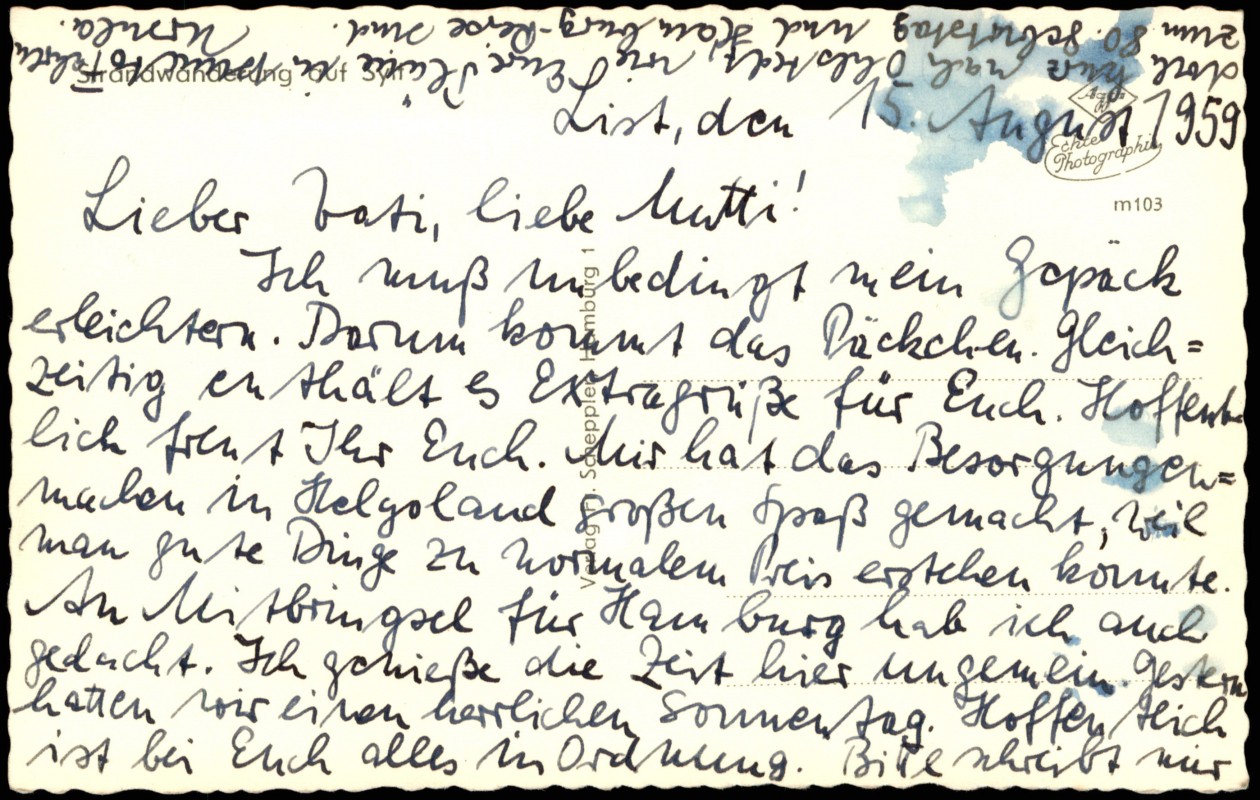 Strandwanderung auf Sylt
List, den 15. August 1959
Agfa
Echte
Photographie
m103
Lieber Vati, liebe Mutti!
Ich muß unbedingt mein Gepäck
erleichtern. Darum kommt das Päckchen. Gleich=
zeitig enthält es Extragrüße für Euch. Hoffent-
lich freut Ihr Euch. Mir hat das Besorgungen=
machen in Helgoland großen Spaß gemacht, weil
man gute Dinge zu normalem Preis erstehen konnte.
An Mitbringsel für Hamburg hab ich auch
gedacht. Ich genieße die Zeit hier ungemein. Gestern
hatten wir einen herrlichen Sonnentag. Hoffentlich
ist bei Euch alles in Ordnung. Bitte schreibt mir
doch kurz nach Ohlstedt, wie Eure Pläne in puncto Fahren
zum 80. Geburtstag und Hamburg-Reise sind.
Ursula.
Verlag M. Schepplei Hamburg 1